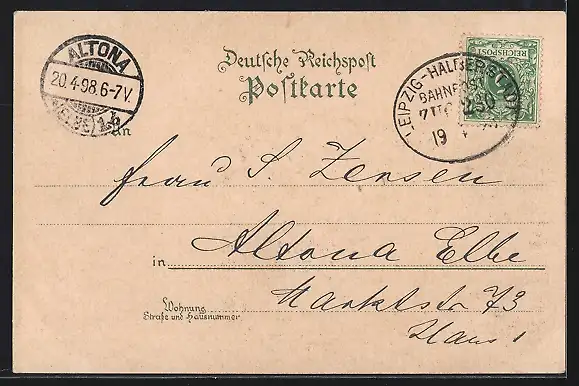 Deutsche Reichspost
Postkarte
ALTONA
20.4.98.6-7V.
1h
LEIPZIG-HALBERSTADT
BAHNPOST
ZUG
19
REICHSPOST
An
Frau S. Zensen
in Altona Elbe
Wohnung
Straße und Hausnummer
Marktstr 73
Haus 1